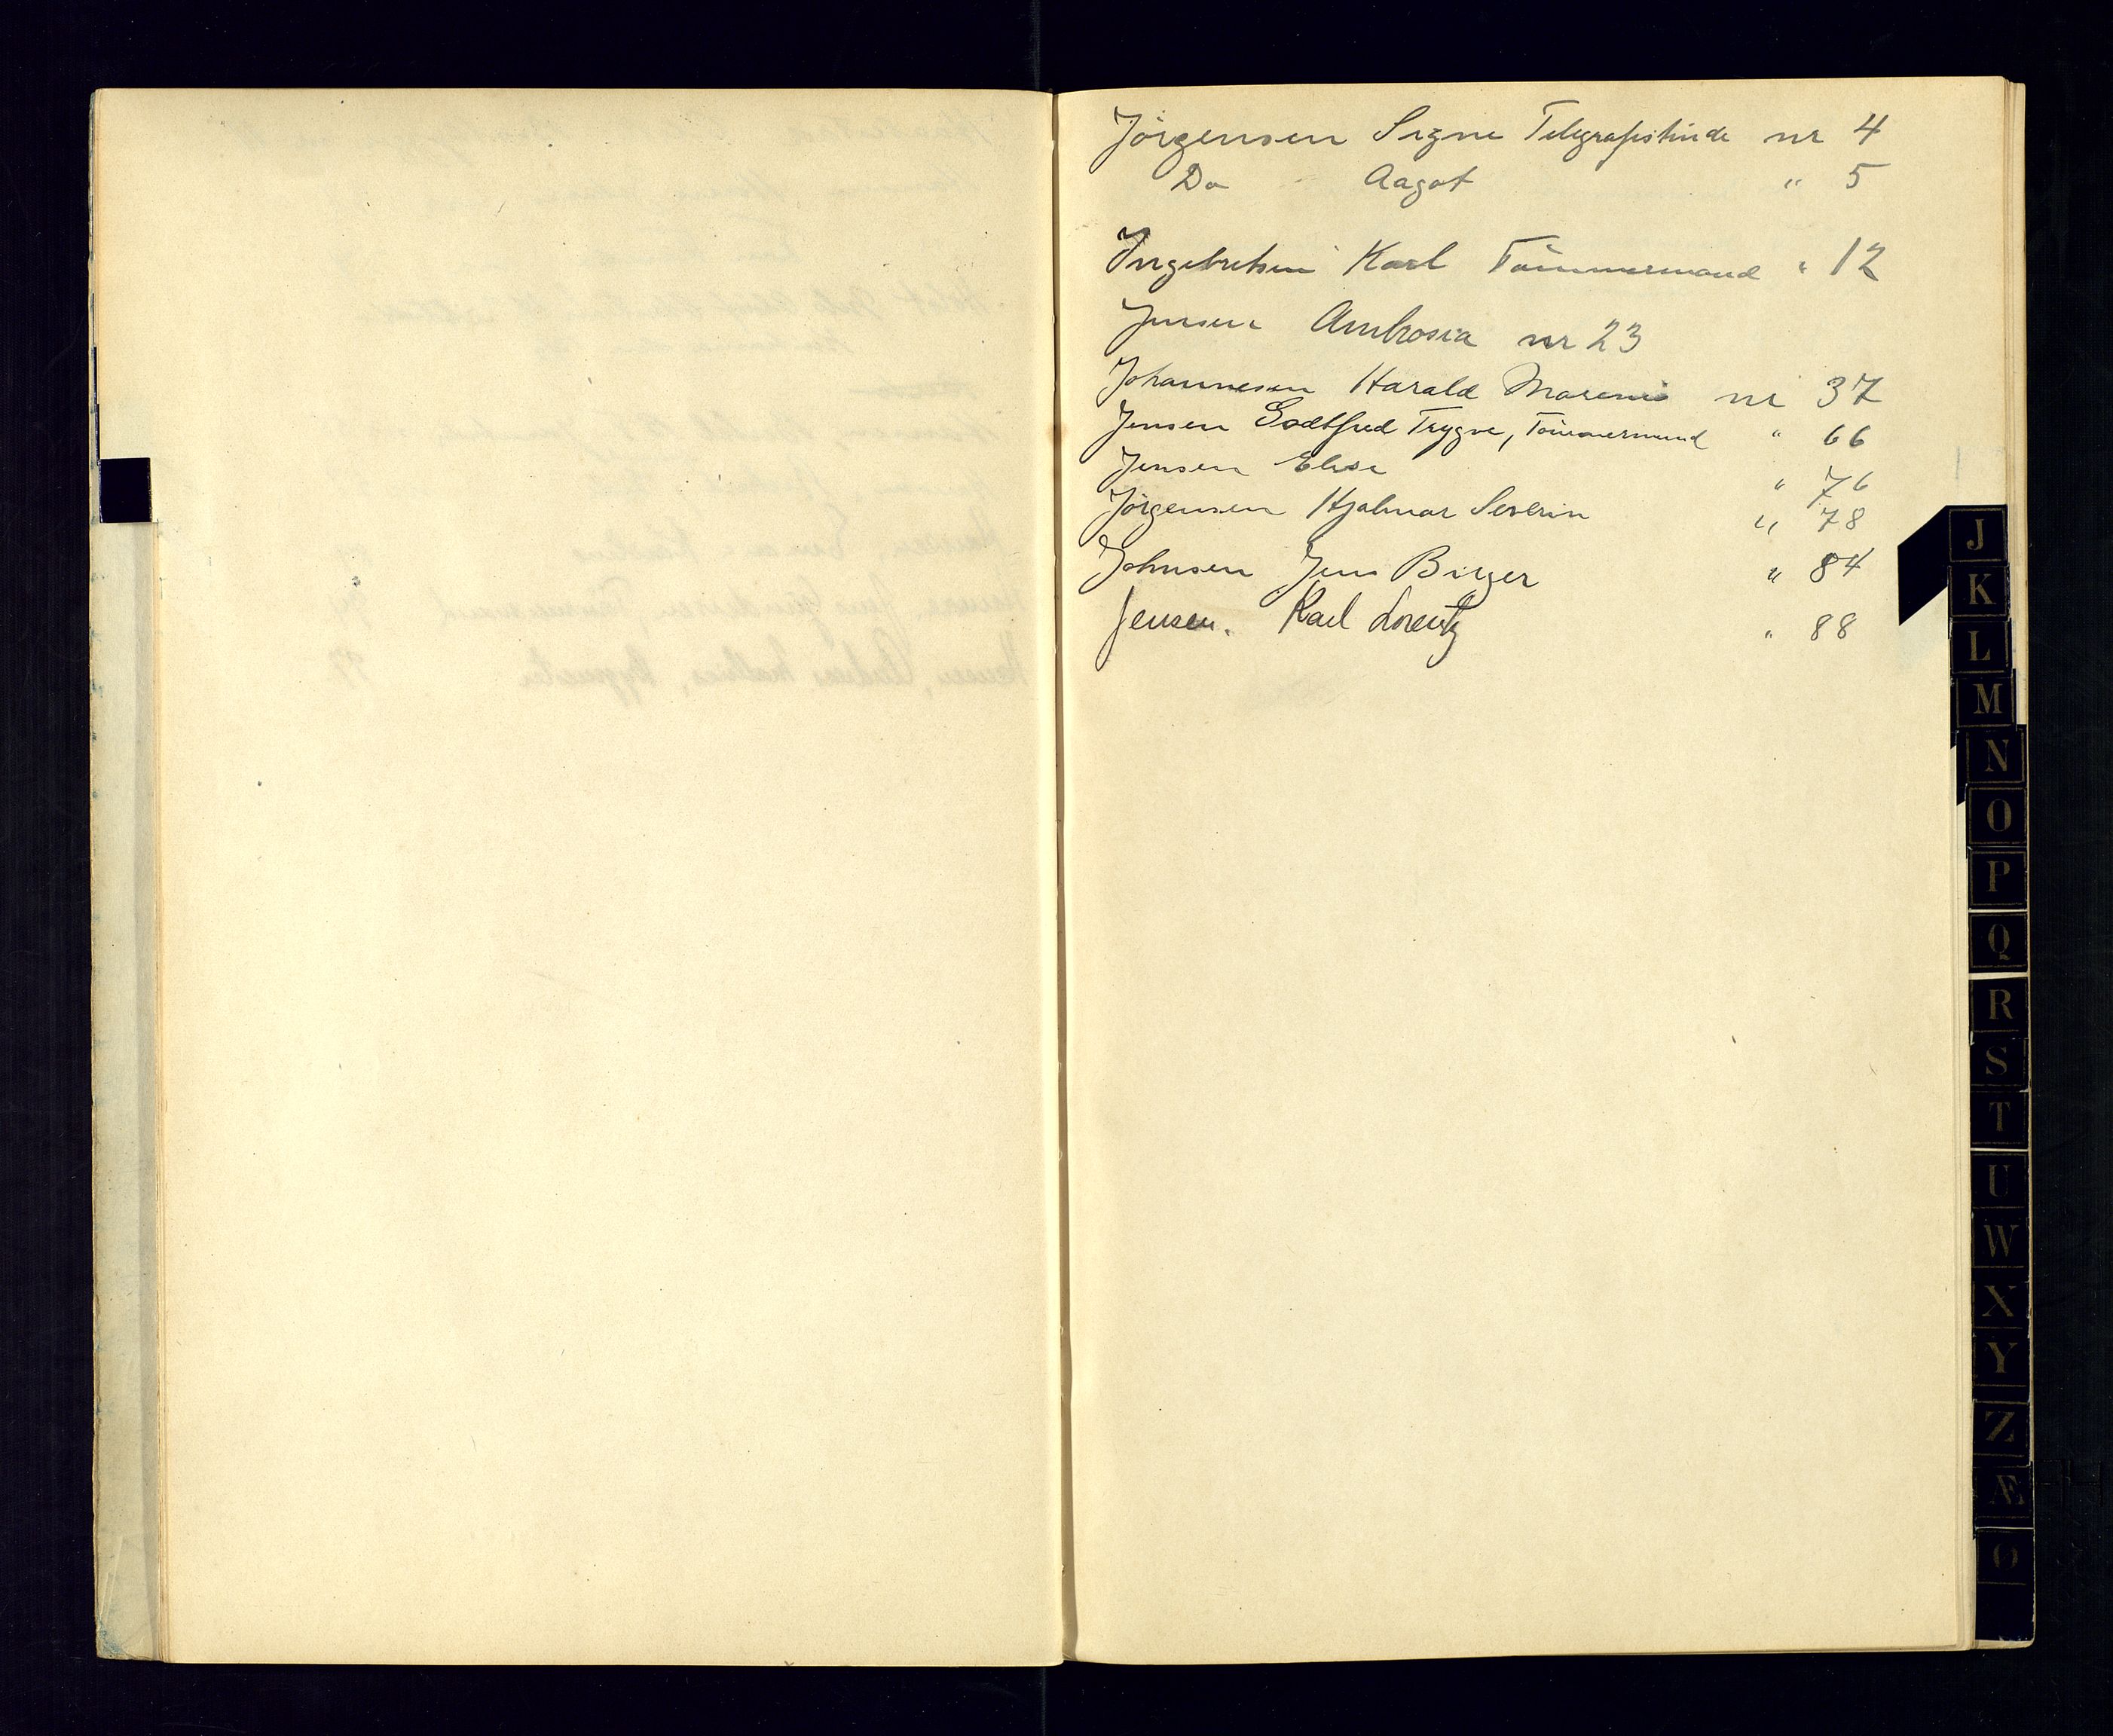 Jörgensen Signe Telegrafistinde nr 4
Do Aagot " 5
Ingebretsen Karl Tömmermand " 12
Jensen Ambrosia nr 23
Johannesen Harald nr 37
Jensen Godtfred Trygve, Tömmermand " 66
Jensen Elise " 76
Jörgensen Hjalmar Severin " 78
Johnsen Jens Birger " 84
Jensen. Karl Lorentz " 88
J
K
L
M
N
O
P
Q
R
S
T
U
W
X
Y
Z
Æ
Ø